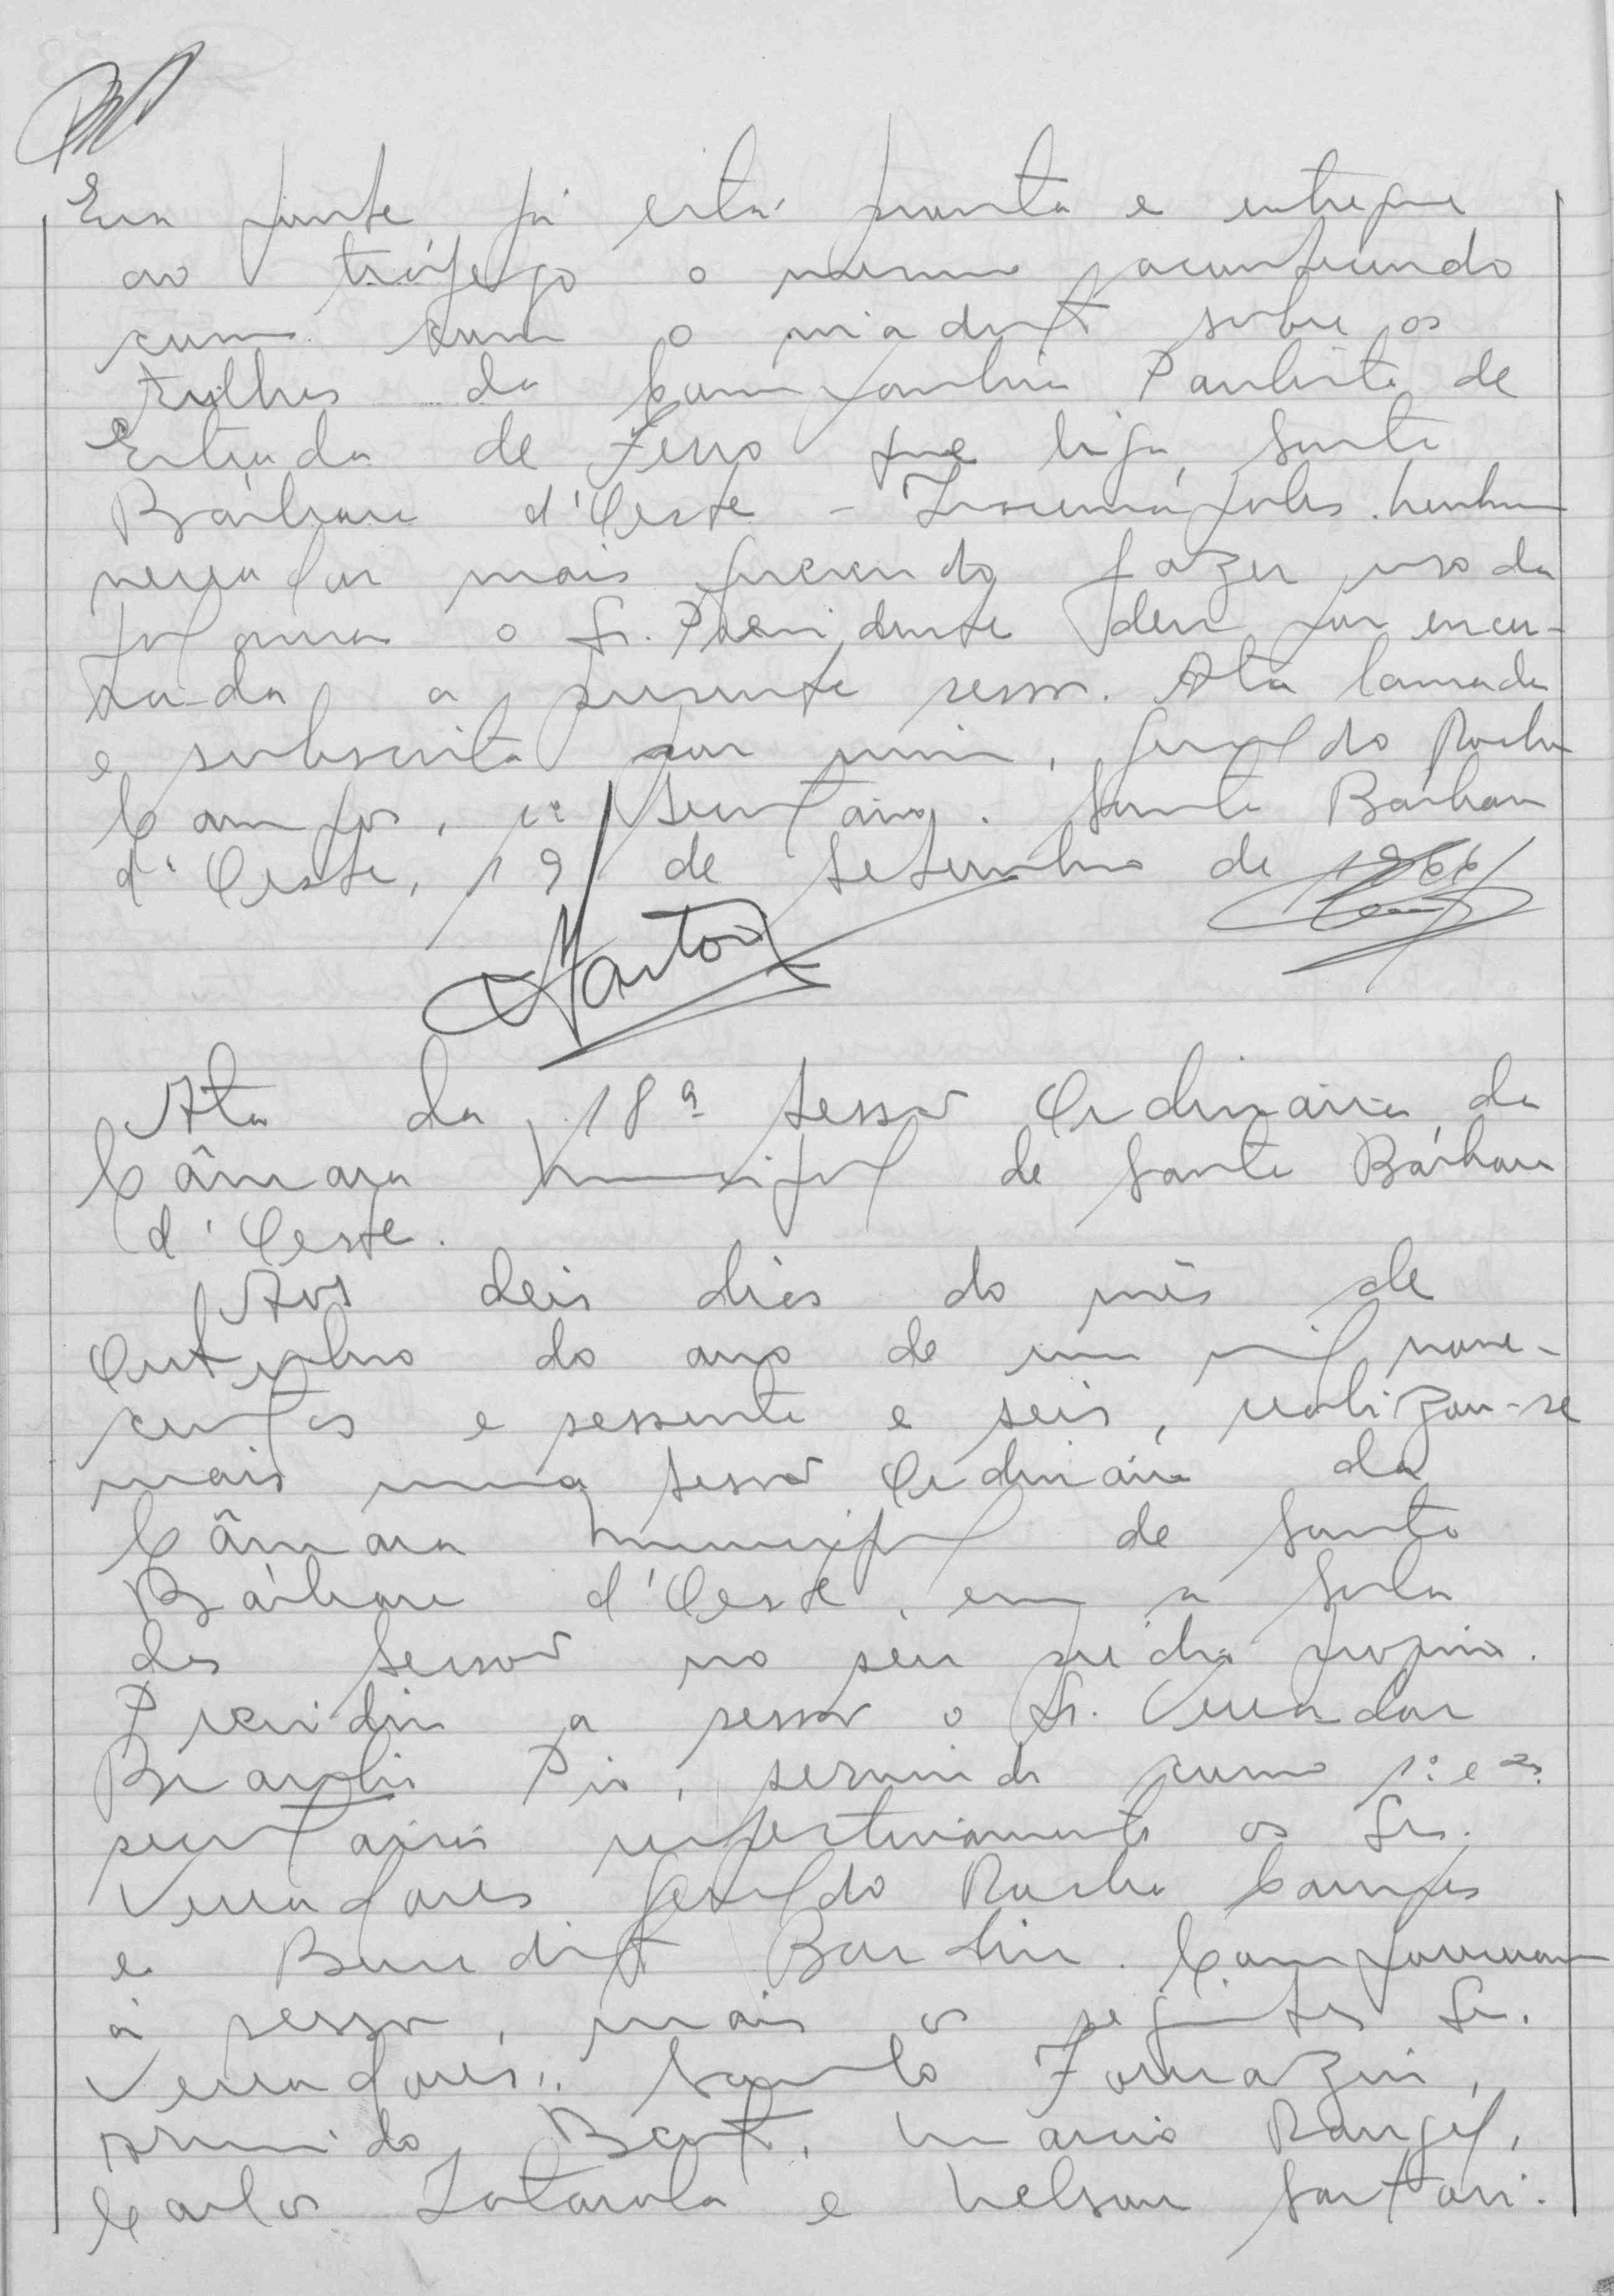 Essa ponte já está pronta e entregue
ao tráfego o mesmo acontecendo
com o viaduto sobre os
trilhos da Companhia Paulista de
Estrada de Ferro que liga Santa
Bárbara d'Oeste - Iracemápolis. Nenhum
vereador mais querendo fazer uso da
palavra o Sr. Presidente deu por encer-
rada a presente sessão. Ata lavrada
e subscrita por mim, Geraldo Rocha
Campos, 1º Secretário. Santa Bárbara
d'Oeste, 19 de Setembro de 1966
Sartori
Ata da 18ª Sessão Ordinária da
Câmara Municipal de Santa Bárbara
d'Oeste.
Aos dois dias do mês de
Outubro do ano de um mil nove-
centos e sessenta e seis, realizou-se
mais uma Sessão Ordinária da
Câmara Municipal de Santa
Bárbara d'Oeste, em a Sala
das Sessões no seu prédio próprio.
Presidiu a sessão o Sr. Vereador
Braulio Pio, servindo como 1º e 2º
secretários respectivamente os Srs.
Vereadores Geraldo Rocha Campos
e Benedito Bardin. Compareceram
à sessão, mais os seguintes Srs.
Vereadores: Fornazin,
Arnaldo , Marcio Rangel,
Carlos e Nelson Sartori.